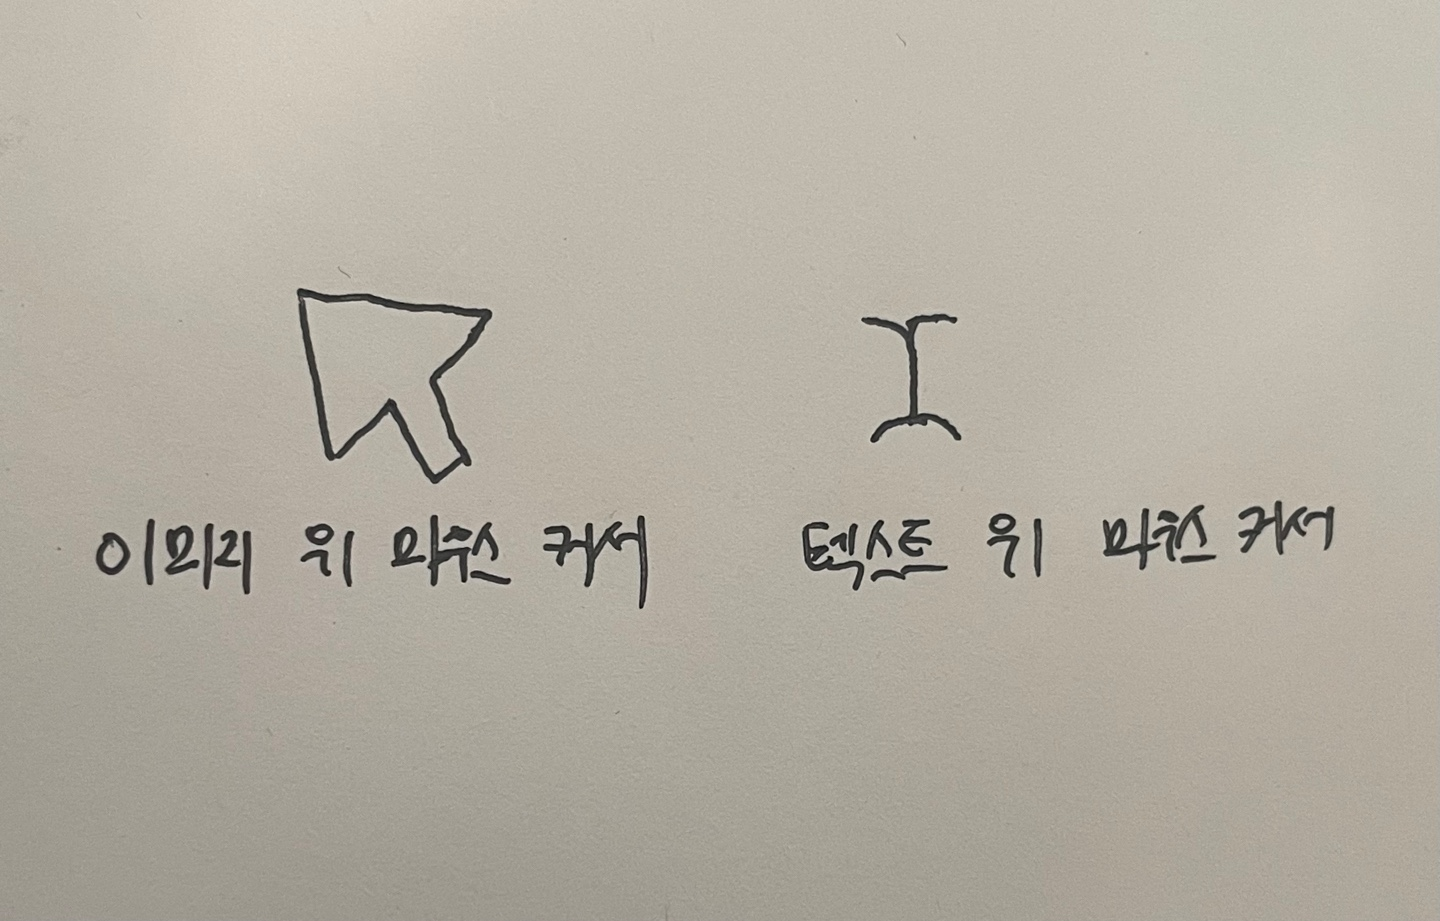 이미지 위 마우스 커서
텍스트 위 마우스 커서